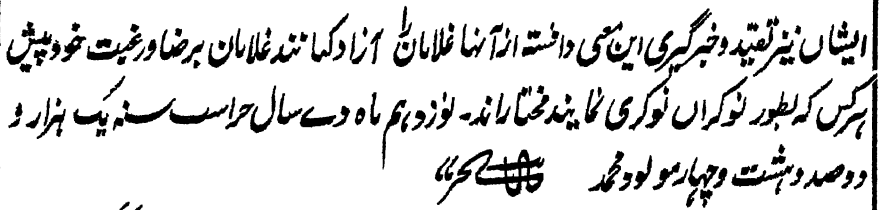 ایشاں نیز تقید و خبرگیری این معنی دانسته از آنها غلامان را آزاد کنانند غلامان برضا و رغبت خود پیش
هر کس که بطور نوکراں نوکری نمایند مختار اند۔ نوزدهم ماه دے سال حراست سنه یک هزار و
دو صد و هشت و چهار مولود محمد